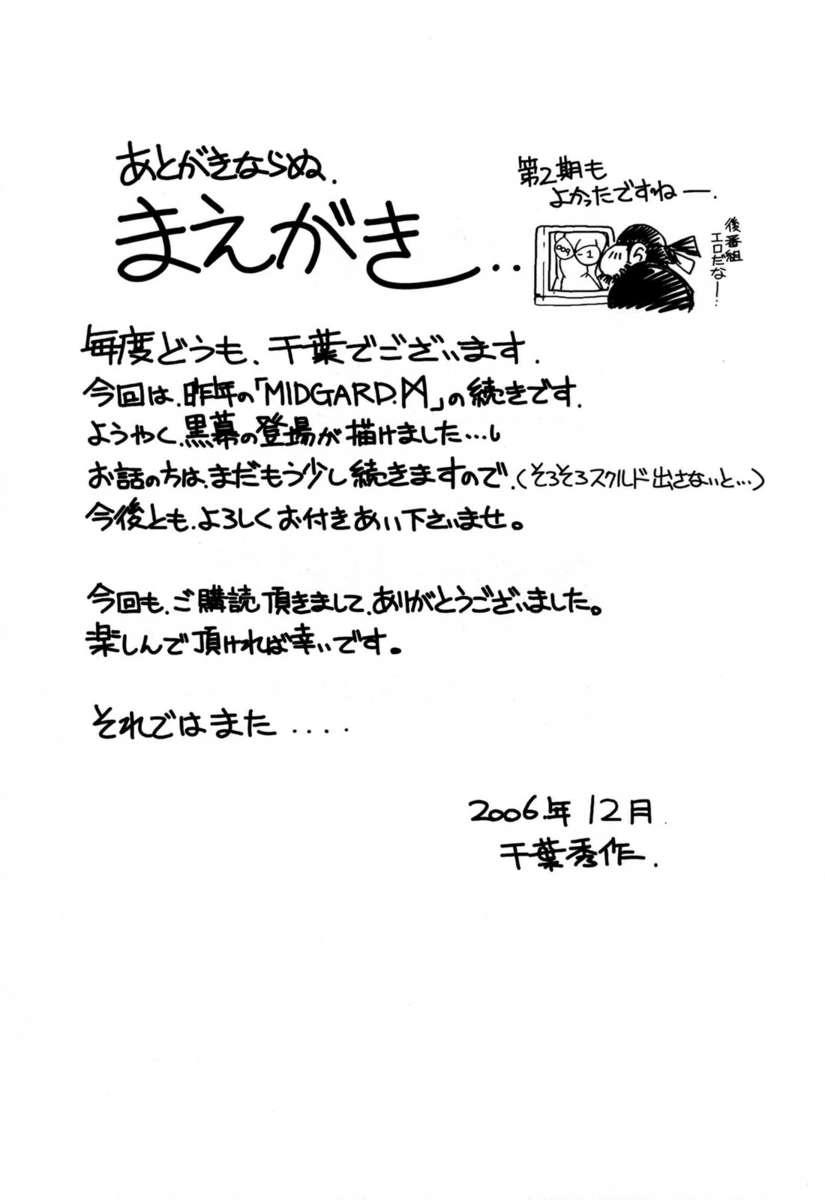 あとがきならぬ.
まえがき..
第2期も
よかったですねー.
後番組
エロだなー…
毎度どうも、千葉でございます.
今回は、昨年の「MIDGARD.ᛞ」の続きです.
ようやく、黒幕の登場が描けました…。
お話の方は、まだもう少し続きますので、(そろそろスクルド出さないと…)
今後とも、よろしくお付きあい下さいませ。
今回も、ご購読頂きまして、ありがとうございました。
楽しんで頂ければ幸いです。
それではまた ....
2006年 12月
千葉秀作.